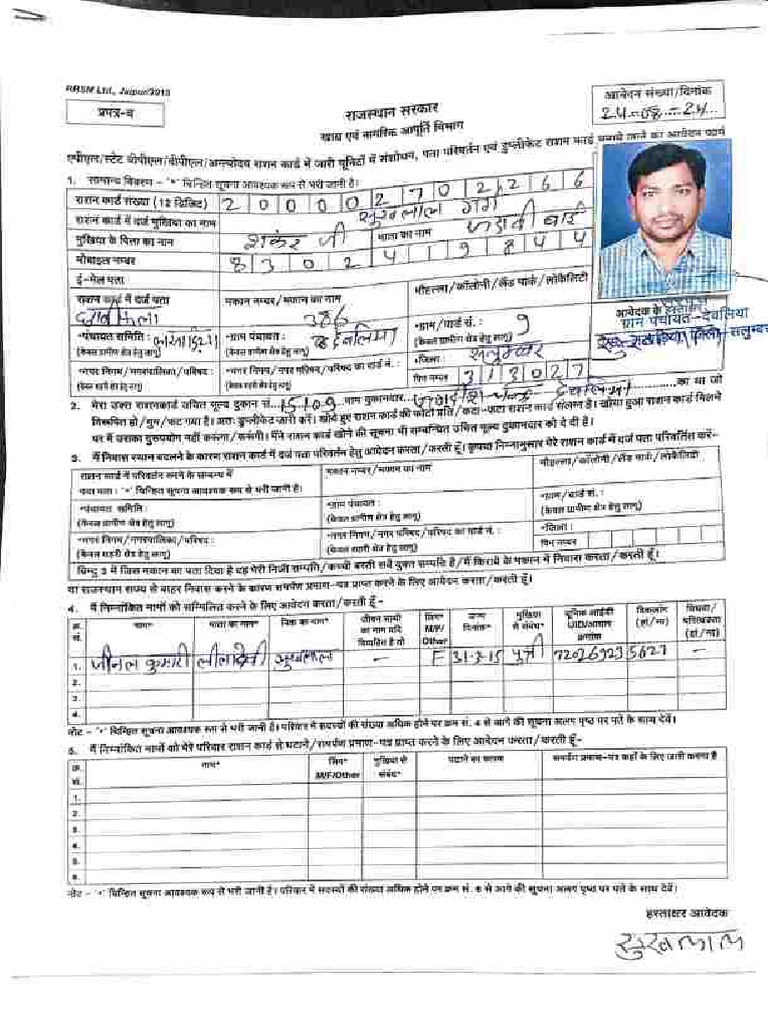 RRSM Ltd., Jaipur/2013
प्रपत्र-ब
राजस्थान सरकार
खाद्य एवं नागरिक आपूर्ति विभाग
आवेदन संख्या/दिनांक
24-08-24
एपीएल/स्टेट बीपीएल/बीपीएल/अन्त्योदय राशन कार्ड में जारी यूनिटों में संशोधन, पता परिवर्तन एवं डुप्लीकेट राशन कार्ड बनाये जाने का आवेदन पत्र
1. सामान्य विवरण - "*" चिन्हित सूचना आवश्यक रूप से भरी जानी है।
राशन कार्ड संख्या (12 डिजिट) 200002702266
राशन कार्ड में दर्ज मुखिया का नाम सुखलाल
मुखिया के पिता का नाम शंकर जी माता का नाम
मोबाइल नम्बर 8302419844
ई-मेल पता
राशन कार्ड में दर्ज पता मकान नम्बर/मकान का नाम 386 मौहल्ला/कॉलोनी/लैंड मार्क/लोकेलिटी
*पंचायत समिति : *ग्राम पंचायत : देवलिया *ग्राम/वार्ड सं. : 9
(केवल ग्रामीण क्षेत्र हेतु लागू) (केवल ग्रामीण क्षेत्र हेतु लागू) (केवल ग्रामीण क्षेत्र हेतु लागू)
*नगर निगम/नगरपालिका/परिषद : *नगर निगम/नगर परिषद/परिषद का वार्ड सं. : *जिला: सलुम्बर
(केवल शहरी क्षेत्र हेतु लागू) (केवल शहरी क्षेत्र हेतु लागू) पिन नम्बर 313027
आवेदक के
ग्राम पंचायत-देवलिया
सलुम्बर
2. मेरा उक्त राशनकार्ड उचित मूल्य दुकान सं. 15109 नाम दुकानदार का था जो
विरूपित हो/गुम/फट गया है। अतः डुप्लीकेट जारी करें। खोये हुए राशन कार्ड की फोटो प्रति/कटा-फटा राशन कार्ड संलग्न है। खोया हुआ राशन कार्ड मिलने
पर मैं उसका दुरुपयोग नहीं करूंगा/करूंगी। मैंने राशन कार्ड खोने की सूचना भी सम्बन्धित उचित मूल्य दुकानदार को दे दी है।
3. मैं निवास स्थान बदलने के कारण राशन कार्ड में दर्ज पता परिवर्तन हेतु आवेदन करता/करती हूँ। कृपया निम्नानुसार मेरे राशन कार्ड में दर्ज पता परिवर्तित करें-
राशन कार्ड में परिवर्तन करने के सम्बन्ध में मकान नम्बर/मकान का नाम मौहल्ला/कॉलोनी/लैंड मार्क/लोकेलिटी
नया पता : "*" चिन्हित सूचना आवश्यक रूप से भरी जानी है।
*पंचायत समिति : *ग्राम पंचायत : *ग्राम/वार्ड सं. :
(केवल ग्रामीण क्षेत्र हेतु लागू) (केवल ग्रामीण क्षेत्र हेतु लागू) (केवल ग्रामीण क्षेत्र हेतु लागू)
*नगर निगम/नगरपालिका/परिषद : *नगर निगम/नगर परिषद/परिषद का वार्ड सं. : *जिला :
(केवल शहरी क्षेत्र हेतु लागू) (केवल शहरी क्षेत्र हेतु लागू) पिन नम्बर
बिन्दु 3 में जिस मकान का पता दिया है वह मेरी निजी सम्पत्ति/कच्ची बस्ती सर्वे युक्त सम्पत्ति है/मैं किराये के मकान में निवास करता/करती हूँ।
या राजस्थान राज्य से बाहर निवास करने के कारण समर्पण प्रमाण-पत्र प्राप्त करने के लिए आवेदन करता/करती हूँ।
4. मैं निम्नांकित नामों को सम्मिलित करने के लिए आवेदन करता/करती हूँ -
क्र. सं. नाम* माता का नाम* पिता का नाम* जीवन साथी का नाम यदि विवाहित है तो लिंग* M/F/Other जन्म दिनांक* मुखिया से संबंध* यूनिक आईडी UID/आधार क्रमांक विकलांग (हां/ना) विधवा/परित्यक्ता (हां/ना)
1. जीनल कुमारी लीलादेवी सुखलाल - F 31-3-15 पुत्री 720269235627 - -
2.
3.
4.
नोट - "*" चिन्हित सूचना आवश्यक रूप से भरी जानी है। परिवार में सदस्यों की संख्या अधिक होने पर क्रम सं. 4 से आगे की सूचना अलग पृष्ठ पर पते के साथ देवें।
5. मैं निम्नांकित नामों को मेरे परिवार राशन कार्ड से घटाने/समर्पण प्रमाण-पत्र प्राप्त करने के लिए आवेदन करता/करती हूँ-
क्र. सं. नाम* लिंग* M/F/Other मुखिया से संबंध* घटाने का कारण समर्पण प्रमाण-पत्र कहाँ के लिए जारी करना है
1.
2.
3.
4.
5.
6.
नोट - "*" चिन्हित सूचना आवश्यक रूप से भरी जानी है। परिवार में सदस्यों की संख्या अधिक होने पर क्रम सं. 6 से आगे की सूचना अलग पृष्ठ पर पते के साथ देवें।
हस्ताक्षर आवेदक
सुखलाल